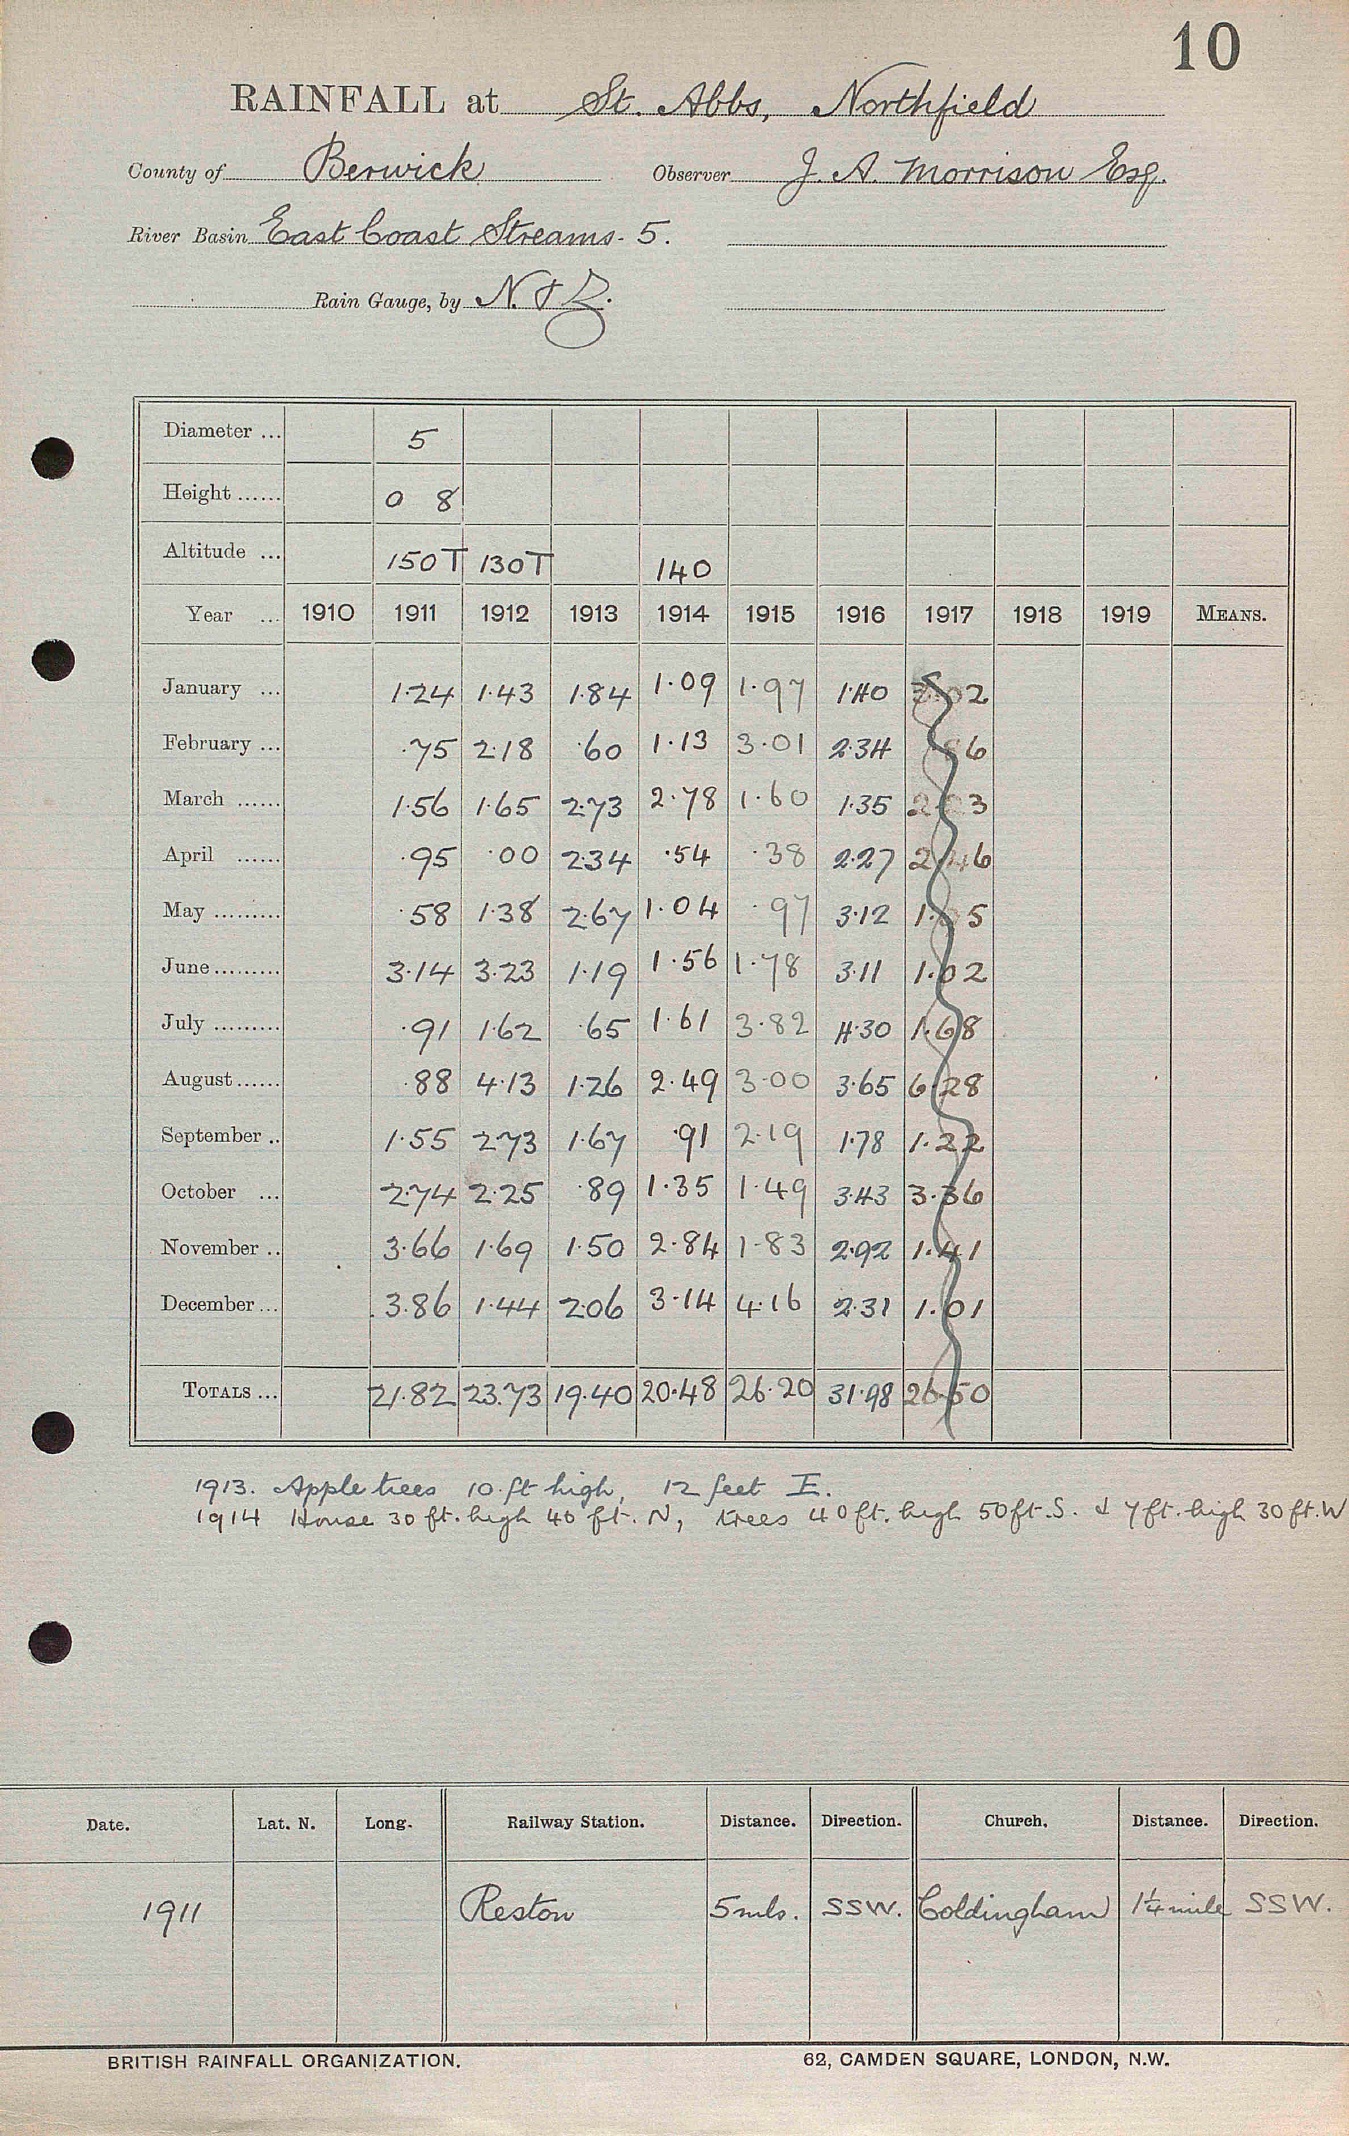 10
RAINFALL at St. Abbs, Northfield
County of Berwick Observer J. A. Morrison Esq.
River Basin East Coast Streams - 5.
Rain Gauge, by N. & Z.
Diameter ... 5
Height ...... 0 8
Altitude ... 150T 130T 140
Year ... 1910 1911 1912 1913 1914 1915 1916 1917 1918 1919 MEANS.
January ... 1.24 1.43 1.84 1.09 1.97 1.40
February ... .75 2.18 .60 1.13 3.01 2.34
March ...... 1.56 1.65 2.73 2.78 1.60 1.35
April ...... .95 .00 2.34 .54 .38 2.27 2.46
May ......... .58 1.38 2.67 1.04 .97 3.12
June ......... 3.14 3.23 1.19 1.56 1.78 3.11 1.02
July ......... .91 1.62 .65 1.61 3.82 4.30 1.68
August ...... .88 4.13 1.26 2.49 3.00 3.65 6.28
September .. 1.55 2.73 1.67 .91 2.19 1.78 1.22
October ... 2.74 2.25 .89 1.35 1.49 3.43 3.36
November .. 3.66 1.69 1.50 2.84 1.83 2.92 1.41
December ... 3.86 1.44 2.06 3.14 4.16 2.31 1.01
TOTALS ... 21.82 23.73 19.40 20.48 26.20 31.98 26.50
1913. Apple trees 10 ft high, 12 feet E.
1914 House 30 ft. high 40 ft. N, trees 40 ft. high 50 ft. S. & 7 ft. high 30 ft. W
Date. Lat. N. Long. Railway Station. Distance. Direction. Church. Distance. Direction.
1911 Reston 5 mls. SSW. Coldingham 1¼ mile SSW.
BRITISH RAINFALL ORGANIZATION. 62, CAMDEN SQUARE, LONDON, N.W.